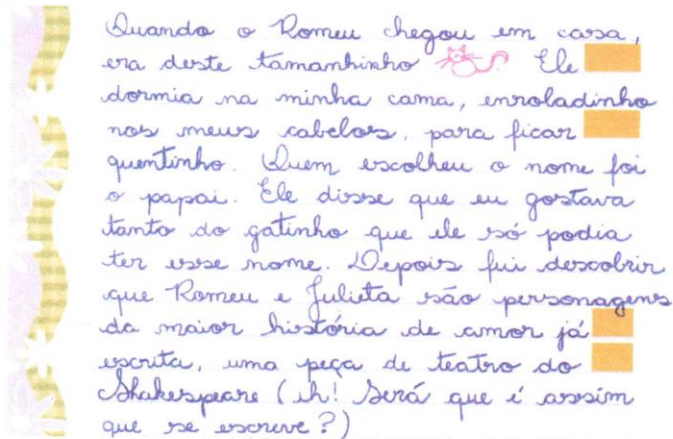 Quando o Romeu chegou em casa,
era deste tamanhinho . Ele
dormia na minha cama, enroladinho
nos meus cabelos, para ficar
quentinho. Quem escolheu o nome foi
o papai. Ele disse que eu gostava
tanto do gatinho que ele só podia
ter esse nome. Depois fui descobrir
que Romeu e Julieta são personagens
da maior história de amor já
escrita, uma peça de teatro do
Shakespeare (ih! Será que é assim
que se escreve?)